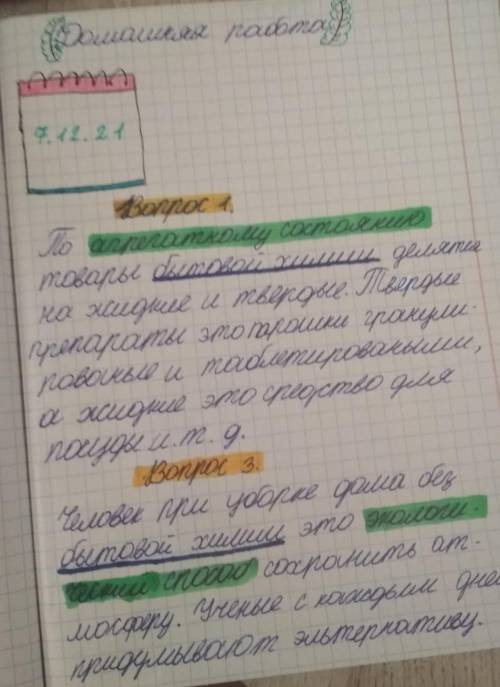 Домашняя работа
7.12.21
Вопрос 1.
По агрегатному состоянию
товары бытовой химии делятся
на жидкие и твердые. Твердые
препараты это порошки гранули-
рованые и таблетироваными,
а жидкие это средство для
посуды и.т.д.
Вопрос 3.
Человек при уборке дома без
бытовой химии это экологи-
ческий способ сохранить ат-
мосферу. Ученые с каждым днем
придумывают эльтернативу.